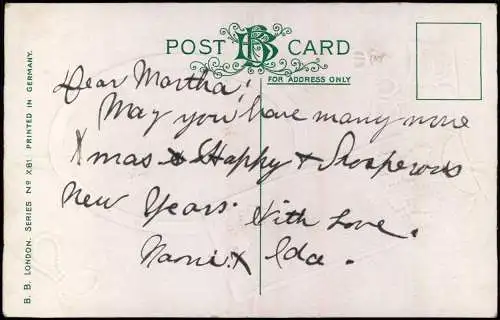 B. B. LONDON. SERIES No X81 PRINTED IN GERMANY.
POST CARD
FOR ADDRESS ONLY
Dear Martha!
May you have many more
Xmas & Happy & Prosperous
New Years. With Love.
& Ida.